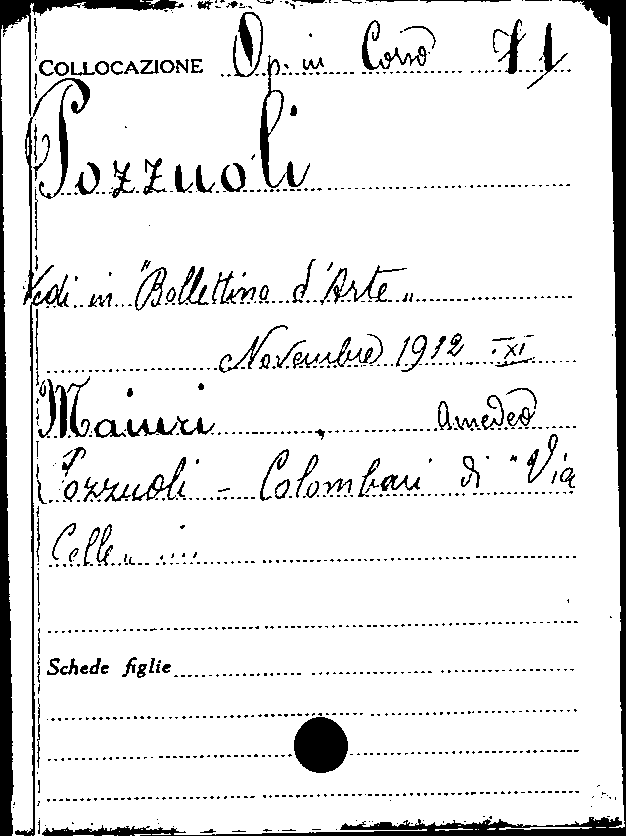 COLLOCAZIONE Op. in Corso 71
Pozzuoli
Vedi in "Bollettino d'Arte„
Novembre 1932 - XI
Maiuri, Amedeo
Pozzuoli - Colombari di "Via
Celle„ ....
Schede figlie